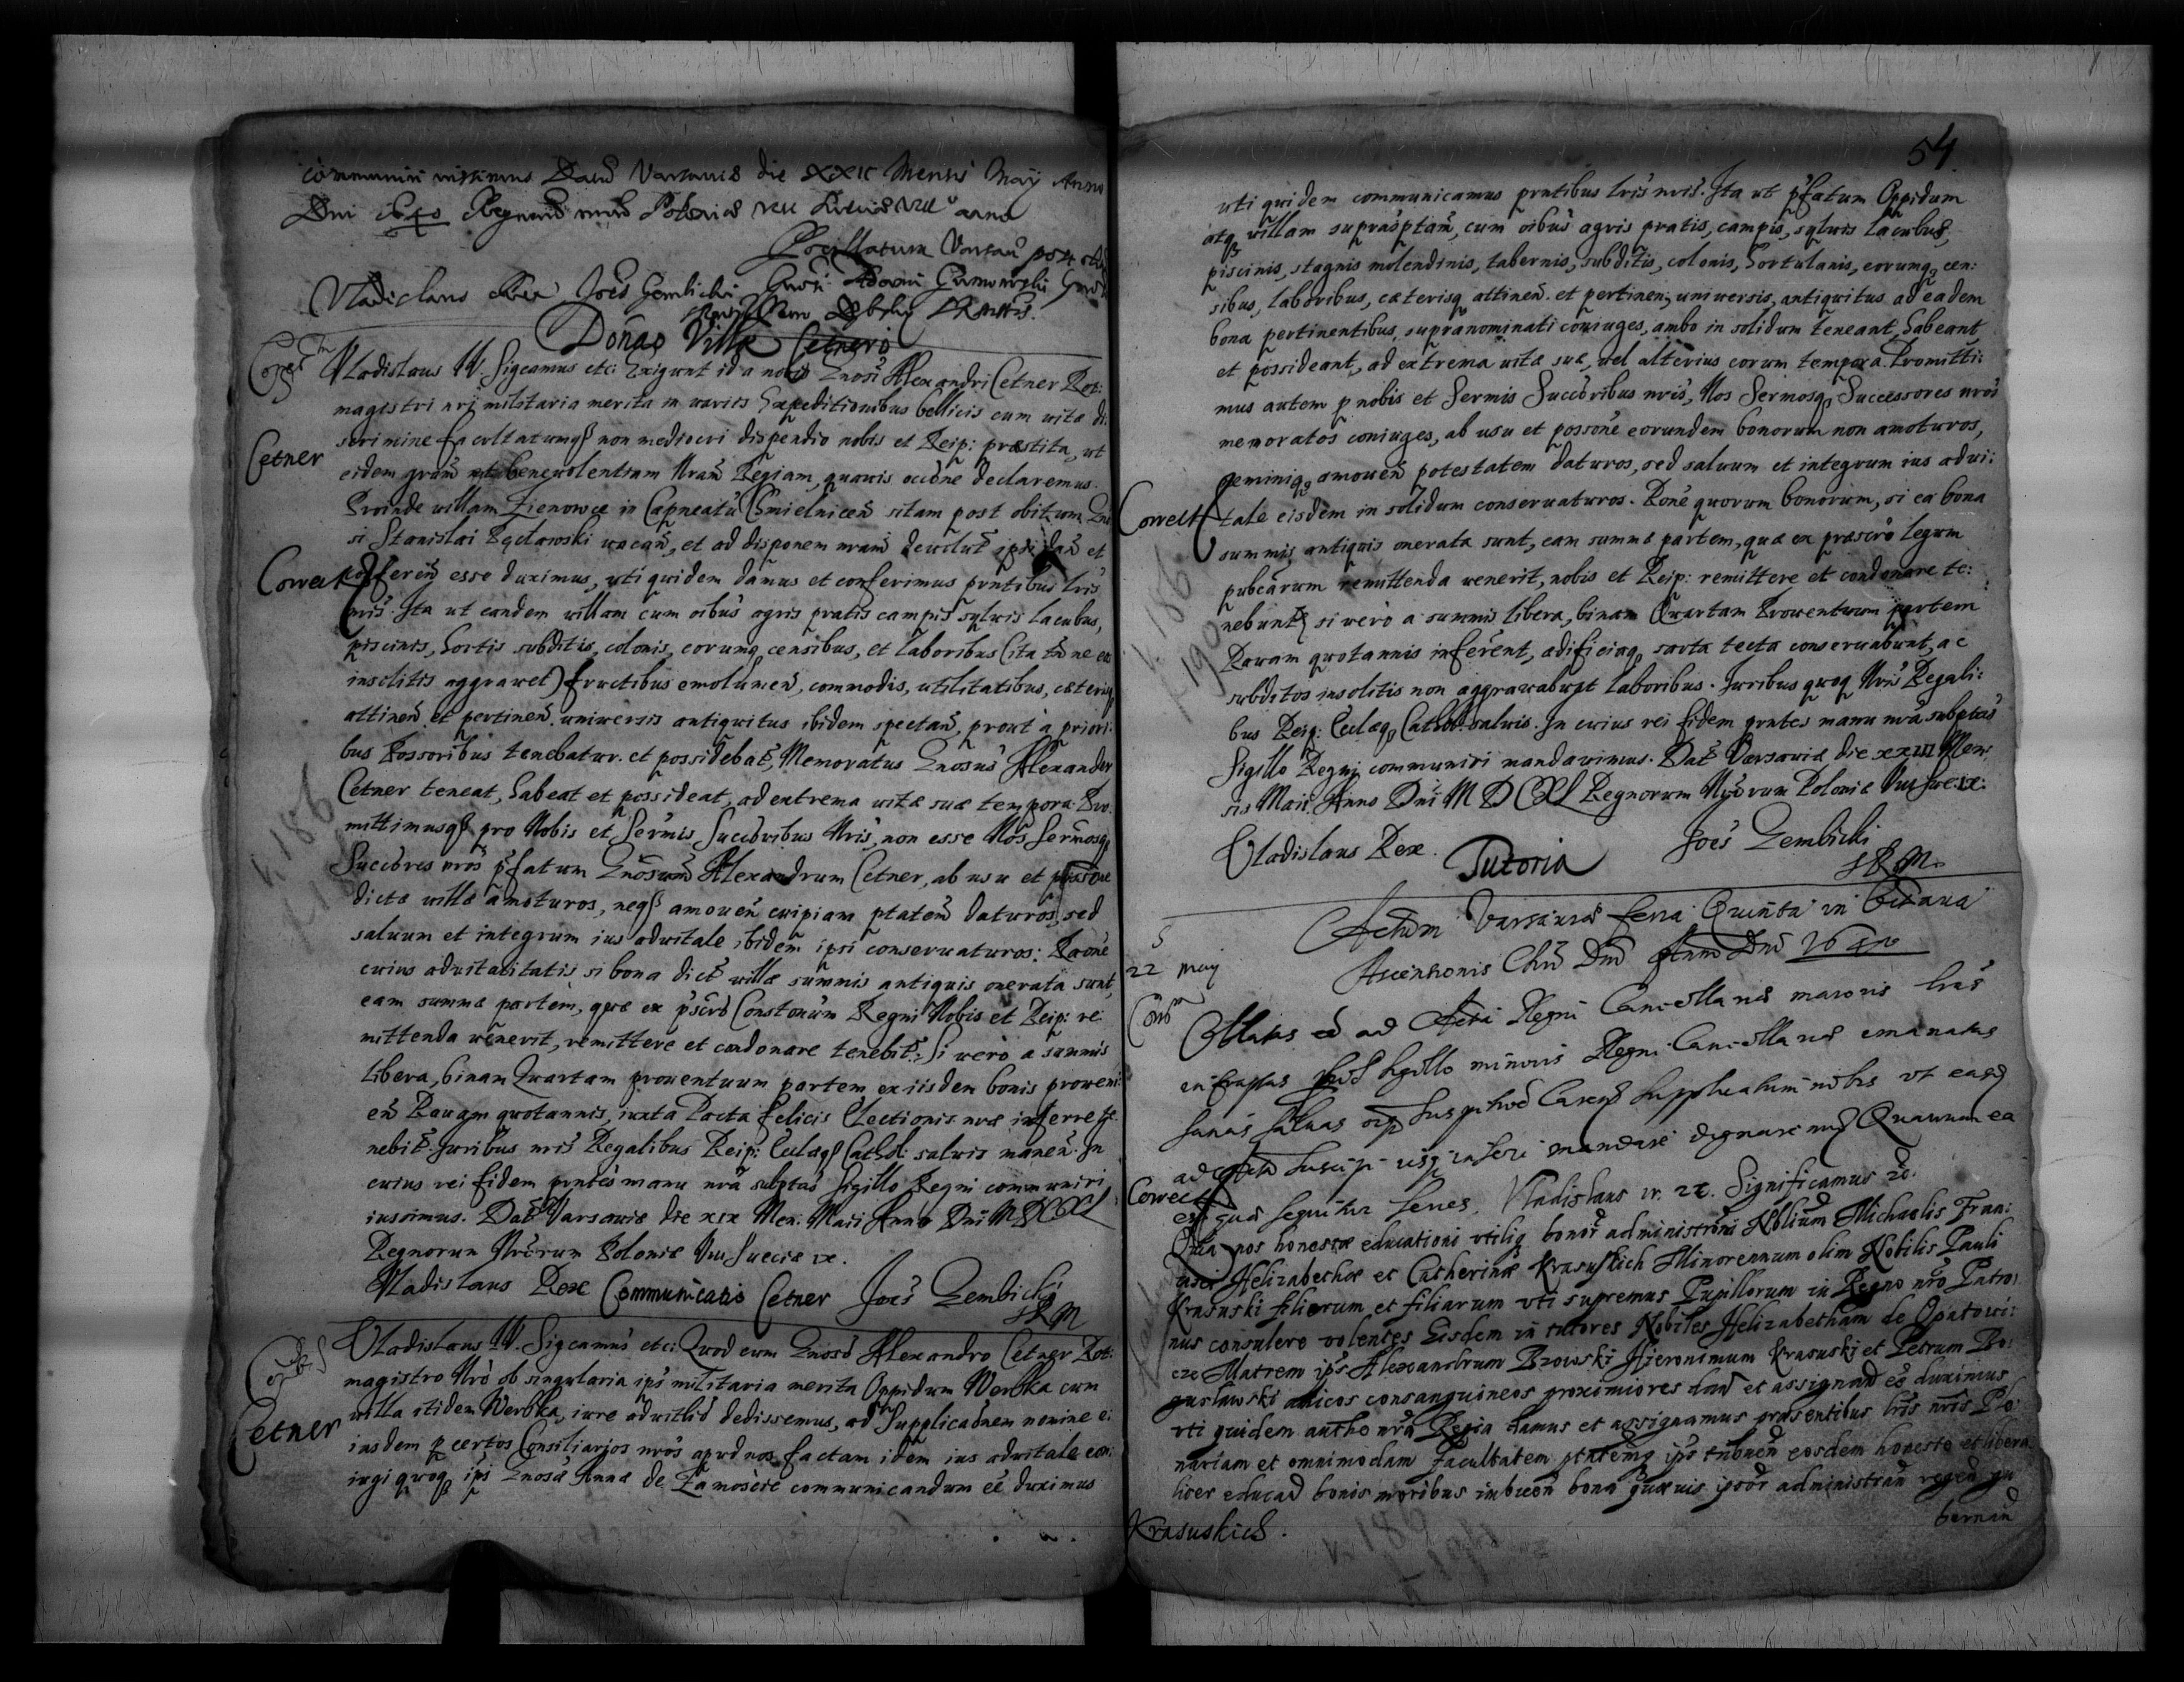 communiri iussimus Datum Varsaviæ die XXIX Mensis Maÿ Anno
Dni 1640 Regnorum Poloniæ VIII Sueciæ VIII anno
Vladislaus Rex Joes Gembicki
Donao Villæ Cetnero
Vladislaus IV. Sigcamus etc: Exigunt id a nobis Gnosi Alexandri Cetner Rot:
magistri nri militaria merita in varijs Expeditionibus bellicis cum vitæ di:
scrimine facultatumq non mediocri dispendio nobis et Reip: præstita, ut
Cetner
eidem gram et benevolentiam Nram Regiam, quavis occone declaremus.
Proinde villam Zienowce in Capneatu Chmielnicen sitam post obitum Gno
si Stanislai Reclawski vacan, et ad disponem nram devolut ipsi dan et
Correct
conferen esse duximus, uti quidem damus et conferimus pntibus lris
nris. Ita ut eandem villam cum oibus agris pratis campis sylvis lacubus,
piscinis, hortis subditis, colonis, eorumq censibus, et laboribus (ita tn ne eos
insolitis aggravet) fructibus emolumen, commodis, utilitatibus, cæterisq
attinen et pertinen. universis antiquitus ibidem spectan, prout à priori:
bus Possoribus tenebatur. et possidebat, Memoratus Gnosus Alexander
Cetner teneat, habeat et possideat, ad extrema vitæ suæ tempora. Pro:
mittimusq pro Nobis et Sermis Succoribus Nris, non esse Nos Sermosq
Succores nros pfatum Gnosum Alexandrum Cetner, ab usu et possone
dictæ villæ amoturos, neq amoven cuipiam ptatem daturos, sed
salvum et integrum ius advitale ibidem ipsi conservaturos: Raone
cuius advitalitatis si bona dict villæ summis antiquis onerata sunt,
eam summæ partem, quæ ex pscro Constonum Regni Nobis et Reip: re:
mittenda venerit, remittere et condonare tenebit: Si vero a summis
libera, binam Quartam proventuum partem ex iisdem bonis proveni:
en Ravam quotannis, iuxta Pacta felicis Electionis nræ inferre te:
nebit. Juribus nris Regalibus Reip: Ecclæq Cathol: salvis manen. In
cuius rei fidem pntes manu nra subptas Sigillo Regni communiri
iussimus. Dat Varsaviæ die XIX Men. Maii Anno Dni MDCXL
Regnorum Nrorum Poloniæ VIII Sueciæ IX.
Vladislaus Rex Communicatio Cetner Joes Gembicki
SRM
Vladislaus IV. Sigcamus etc: Quod cum Gnoso Alexandro Cetner Rot:
magistro Nro ob singularia ips militaria merita Oppidum Werbka cum
villa itidem Werbka, iure advitlio dedissemus, ad Supplicaonem nomine ei:
Cetner
iusdem p certos Consiliarios nros apud nos factam idem ius advitale con:
iugi quoq ipsi Gnosæ Annæ de Zamoscie communicandum ee duximus
54
uti quidem communicamus pntibus lris nris. Ita ut pfatum Oppidum
atq villam suprasptam, cum oibus agris pratis, campis, sylvis lacubus,
piscinis, stagnis molendinis, tabernis, subditis, colonis, hortulanis, eorumq cen:
sibus, laboribus, cæterisq attinen. et pertinen, universis, antiquitus ad eadem
bona pertinentibus, supranominati coniuges, ambo in solidum teneant, habeant
et possideant, ad extrema vitæ suæ, vel alterius eorum tempora. Promitti:
mus autem p nobis et Sermis Succoribus nris, Nos Sermosq Successores nros
memoratos coniuges, ab usu et possone eorundem bonorum non amoturos,
neminiq amoven potestatem daturos, sed salvum et integrum ius advi:
Correct
tale eisdem in solidum conservaturos. Rone quorum bonorum, si ea bona
summis antiquis onerata sunt, eam summæ partem, quæ ex præscro legum
pubcarum remittenda venerit, nobis et Reip: remittere et condonare te:
nebunt, si vero a summis libera, binam Quartam Proventuum partem
Ravam quotannis inferent, ædificiaq sarta tecta conservabunt, ac
subditos insolitis non aggravabunt laboribus. Juribus quoq Nris Regali:
bus Reip: Ecclæq Cathol. salvis. In cuius rei fidem pntes manu nra subptas
Sigillo Regni communiri mandavimus. Dat Varsaviæ die XXIII Men:
sis Maii Anno Dni MDCXL Regnorum Nrorum Poloniæ VIII Sue: IX:
Vladislaus Rex. Joes Gembicki
Tutoria SRM.
Actum Varsaviæ feria Quinta in Octava
22 May
Ascensionis Chri Dni Anno Dni 1640
Oblatas ad Acta Regni Cancellariæ maioris lras
infrascptas sigillo minoris Regni Cancellariæ emanatas
sanas salvas supplicatum nobis ut easd
ad acta suscipi inseri mandare dignaremur Quarum ea
Correct
est quæ sequitur series. Vladislaus IV. etc. Significamus etc.
Quia nos honestæ educationi utiliq bonor administroni Nobilium Michaelis Fran:
cisci Helizabethæ et Catherinæ Krasuskich Minorennum olim Nobilis Pauli
Krasuski filiorum et filiarum uti supremus Pupillorum in Regno nro Patro:
nus consulere volentes Eisdem in tutores Nobiles Helizabetham de Opatowi:
cze Matrem ips Alexandrum Brzowski Hieronimum Krasuski et Petrum Bo:
gusławski amicos consanguineos proximiores dan et assignan ee duximus
uti quidem autho nra Regia damus et assignamus præsentibus lris nris Ple:
nariam et omnimodam facultatem ptatemq ips tribuen eosdem honeste et libera
liter educan bonis moribus imbuen bona quævis ipsor administran regen gu
Krasuskich.
bernan